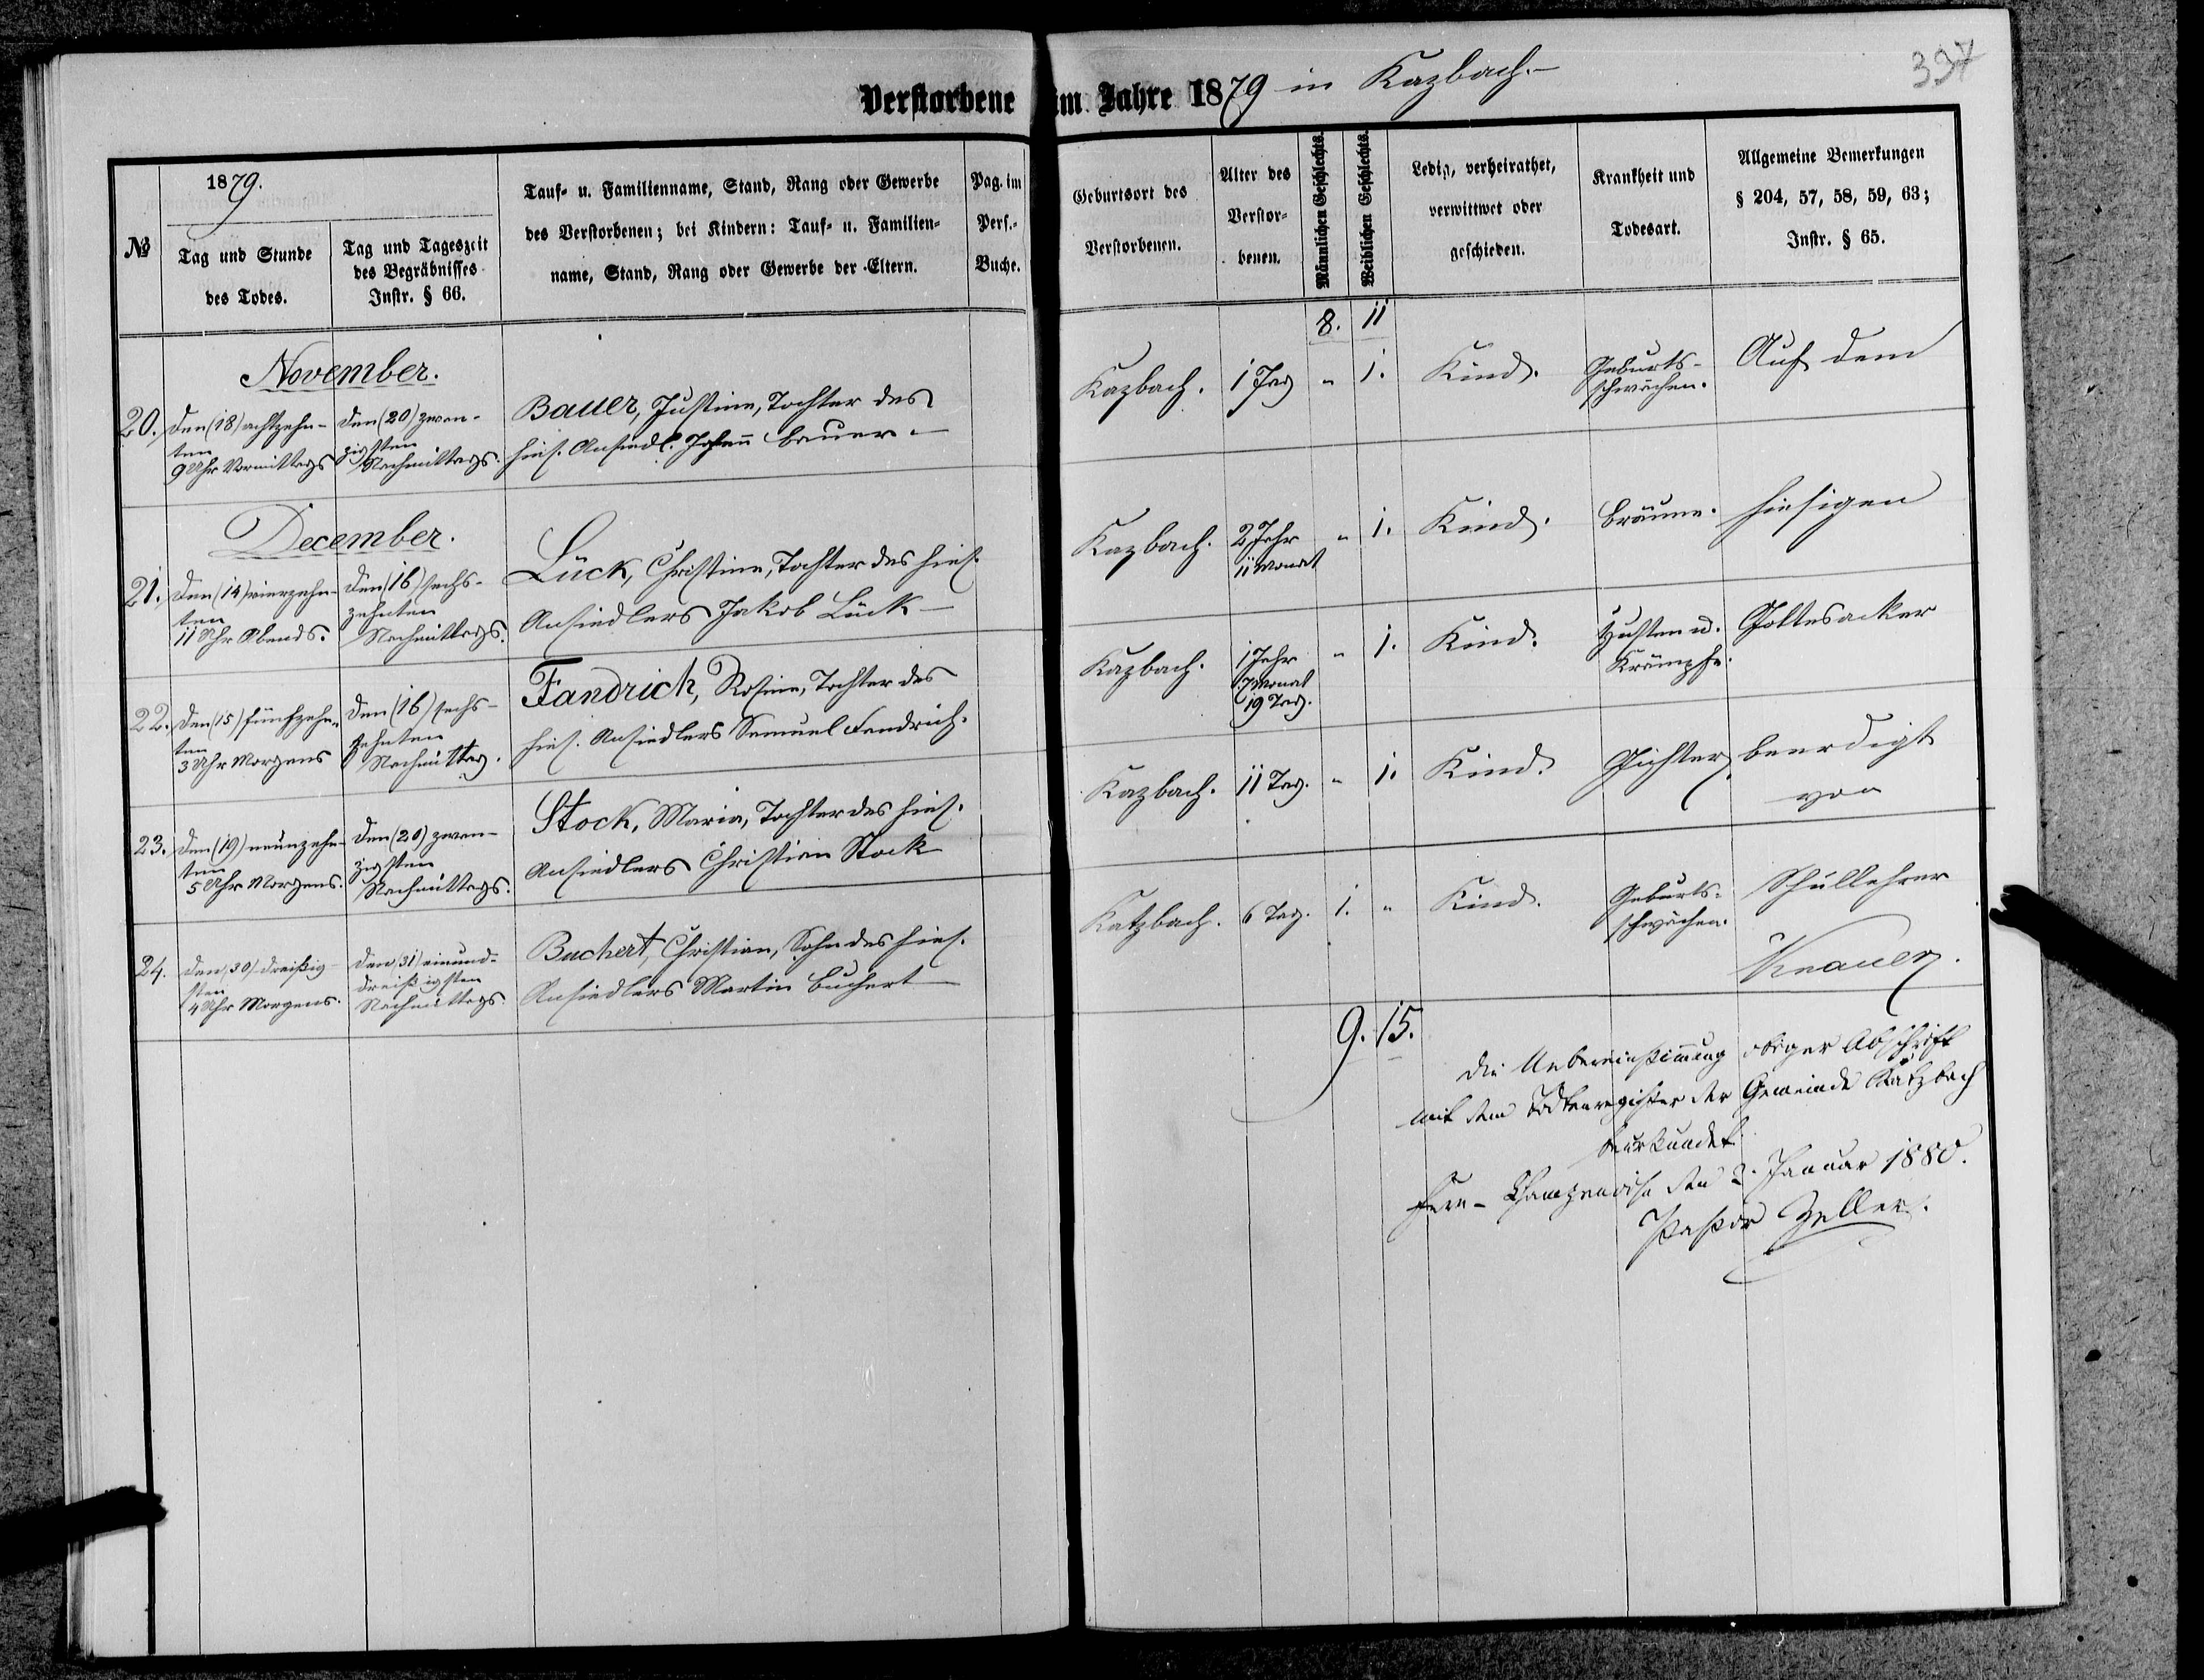 Verstorbene im Jahre 1879 in Kazbach.-
397
№
1879.
Tag und Stunde
des Todes.
Tag und Tageszeit
des Begräbnisses
Instr. § 66.
Tauf- u. Familienname, Stand, Rang oder Gewerbe
des Verstorbenen; bei Kindern: Tauf- u. Familien-
name, Stand, Rang oder Gewerbe der Eltern.
Pag. im
Pers.-
Buche.
Geburtsort des
Verstorbenen.
Alter des
Verstor-
benen.
Männlichen Geschlechts.
Weiblichen Geschlechts.
Ledig, verheirathet,
verwittwet oder
geschieden.
Krankheit und
Todesart.
Allgemeine Bemerkungen
§ 204, 57, 58, 59, 63;
Instr. § 65.
8. 11
November.
20. den (18) achtzehn-
ten
9 Uhr Vormittags
den (20) zwan-
zigsten
Nachmittags.
Bauer, Justine, Tochter des
hies. Ansiedl. Johann Bauer.-
Kazbach. 1 Tag " 1. Kind. Geburts-
schwächen.
Auf dem
December.
21. den (14) vierzehn-
ten
11 Uhr Abends.
den (16) sechs-
zehnten
Nachmittags.
Lück, Christine, Tochter des hies.
Ansiedlers Jakob Lück-
Kazbach. 2 Jahr
11 Monat
" 1. Kind. Bräune. hiesigen
22. den (15) fünfzehn-
ten
3 Uhr Morgens
den (16) sechs-
zehnten
Nachmittag.
Fandrich, Rosine, Tochter des
hies. Ansiedlers Samuel Fandrich.
Kazbach. 1 Jahr
7 Monat
19 Tag.
" 1. Kind. Husten u.
Krämpfe.
Gottesacker
23. den (19) neunzehn-
ten
5 Uhr Morgens.
den (20) zwan-
zigsten
Nachmittags.
Stock, Maria, Tochter des hies.
Ansiedlers Christian Stock
Kazbach. 11 Tag. " 1. Kind. Gichter, beerdigt
von
24. den 30) dreißig-
sten
4 Uhr Morgens.
den 31) einund-
dreißigsten
Nachmittags
Buchert, Christian, Sohn des hies.
Ansiedlers Martin Buchert-
Katzbach. 6 Tag. 1. " Kind. Geburts-
schwächen.
Schullehrer
Knauer.
9. 15.
Die Uebereinstimmung obiger Abschrift
mit dem Todtenregister der Gemeinde Katzbach
beurkundet.
Fere-Champenoise den 2. Januar 1880.
Pastor Zeller.